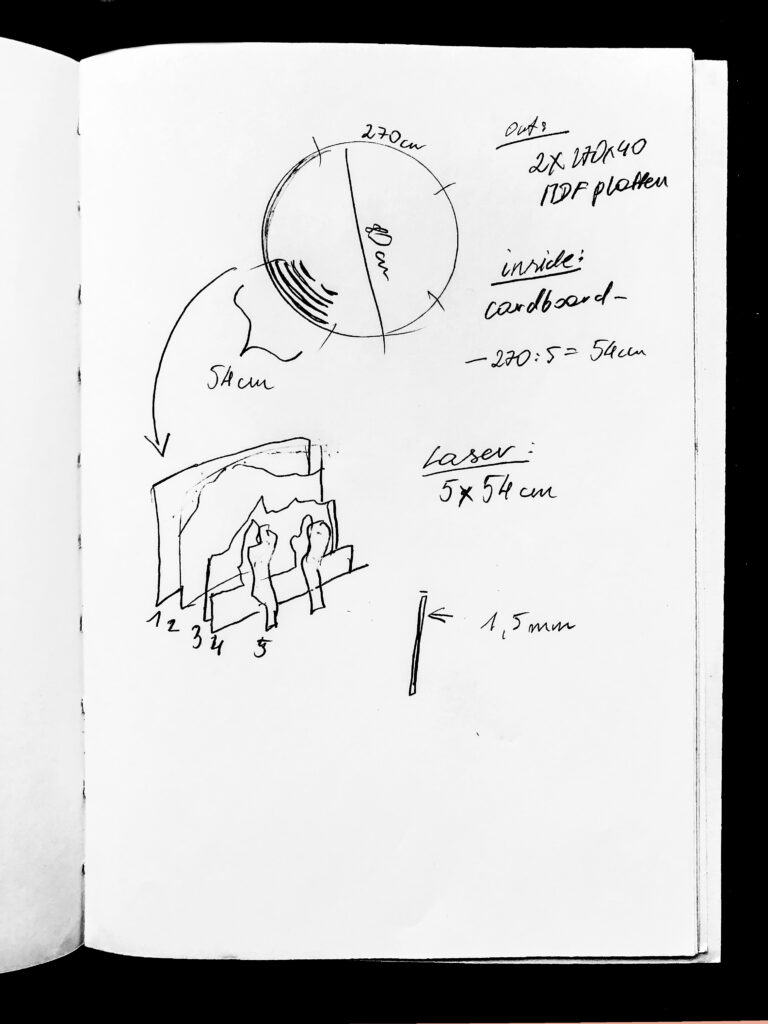 270cm
80 cm
54cm
1 2 3 4 5
out:
2x 270x40
MDF platten
inside:
cardboard-
- 270:5 = 54cm
Laser:
5x54cm
1,5mm